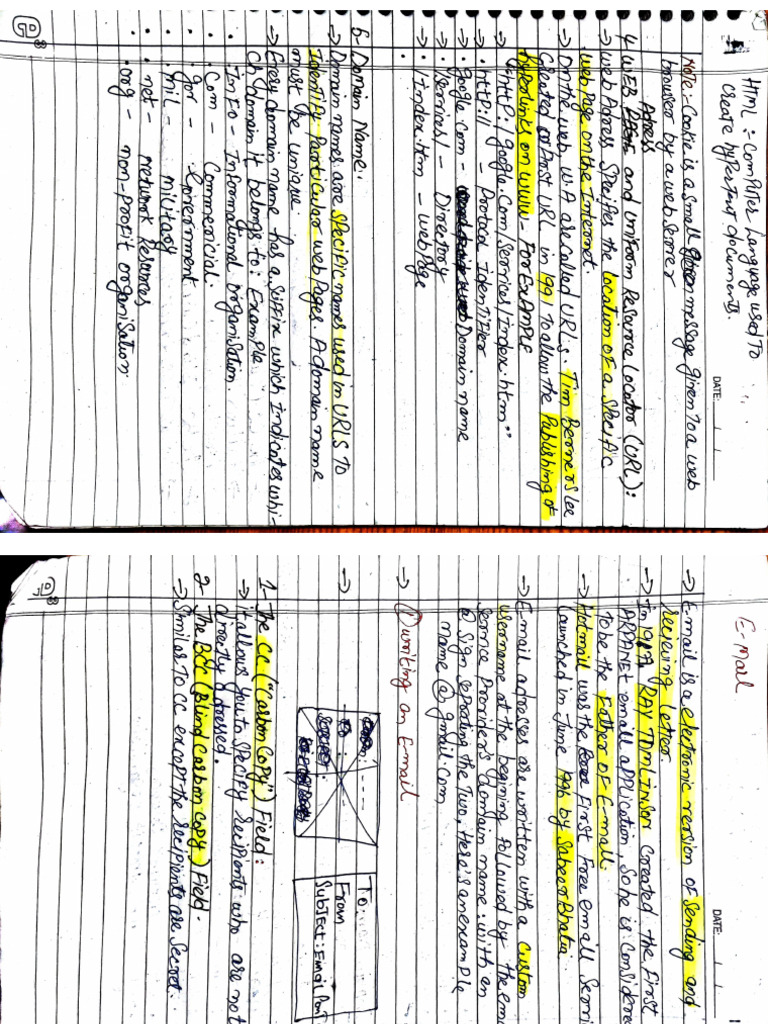 DATE:
HTML : Computer Language used To
create hypertext documents.
Note:- Cookie is a small message given to a web
browser by a web server
4. WEB Adress and Uniform Resource Locator (URL):
→ web Adress Specifies the location of a specific
web page on the Internet
→ On the web, W.A are called URLs. Tim Berners lee
Created First URL in 1991 To allow the Publishing of
hyperlinks on www- For Example
→ "http://google.com/services/index.htm"
→ http:// - Protocol Identifier
→ google.com - Domain name
→ /services/ - Directory
→ /index.htm - web page
5- Domain Name:
→ Domain names are specific names used in URLS To
Identify Particular web pages. A domain name
must be unique.
→ Every domain name has a suffix which Indicates whi-
ch domain it belongs to: Example
• InFo - Informational organisation.
• Com - Commericial.
• gov - Government
• mil - military
• net - network Resources
• org - non-profit organisation.
DATE:
E-Mail
→ E-mail is a electronic version of sending and
recieving letter
→ In RAY TOMLINSON created the First
ARPANET email application, So he is Considere
to be the Father of E-mail.
→ Hotmail was the First Free email Servi
launched in June 1996 by Sabeer Bhatia
→ E-mail adresses are written with a custom
username at the begining Followed by the ema
service Provider's domain name : with an
@ sign seprating the two. Here's an example
name@gmail.com
→ ① writing an E-mail
To:
From
Subject: Email
1- The CC ("Carbon Copy") Field:
→ it allows you to specify recipients who are not
directly adressed.
2- The BCC (Blind Carbon copy) Field.
→ Similar To CC except the recipients are Secret.